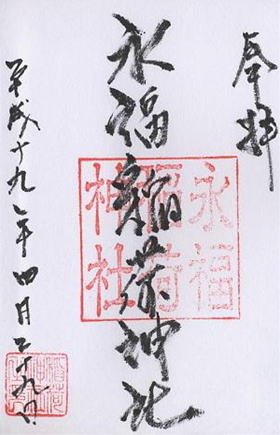 奉拝
永福稲荷神社
永福
稲荷
神社
平成十九年四月二十九日